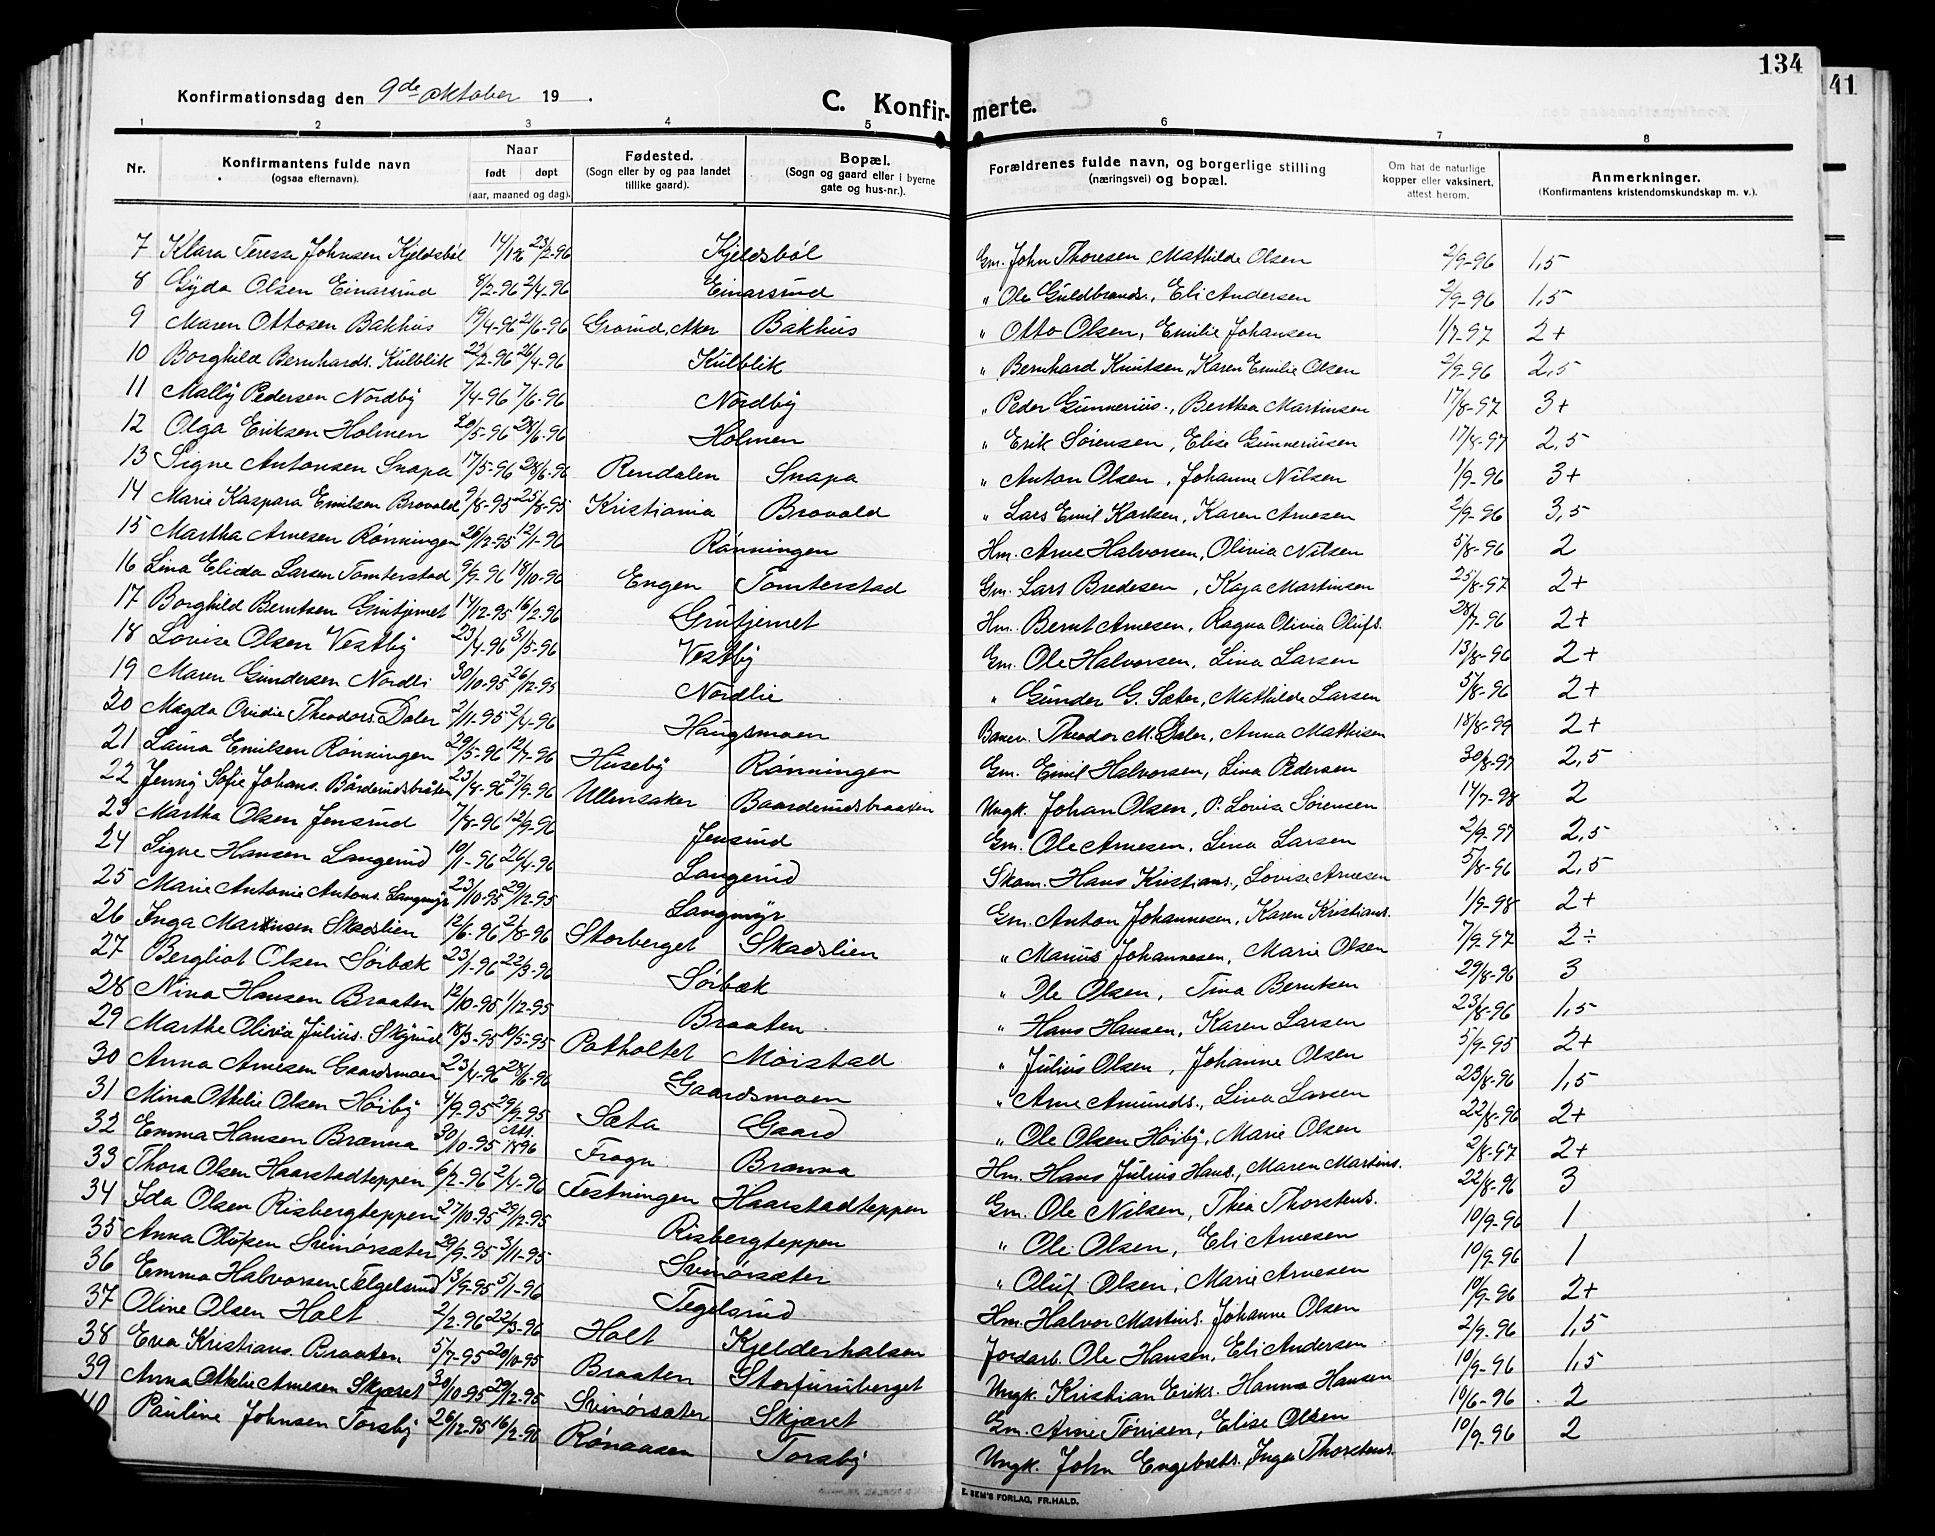 134
41
Konfirmationsdag den 9de oktober 19 .
C. Konfir- merte.
1 2 3 4 5 6 7 8
Nr. Konfirmantens fulde navn (ogsaa efternavn). Naar født døpt (aar, maaned og dag). Fødested. (Sogn eller by og paa landet tillike gaard). Bopæl. (Sogn og gaard eller i byerne gate og hus-nr.). Forældrenes fulde navn, og borgerlige stilling (næringsvei) og bopæl. Om hat de naturlige kopper eller vaksinert, attest herom. Anmerkninger. (Konfirmantens kristendomskundskap m. v.).
7 Klara Teresa Johnsen Kjeldsböl 14/1 96 23/2-96 Kjeldsböl Gm. John Thoresen, Mathilde Olsen 2/9-96 1,5
8 Gyda Olsen Einarsrud 8/2-96 2/4-96 Einarsrud " Ole Guldbrands., Eli Andersen 2/9-96 1,5
9 Maren Ottosen Bakhus 19/4-96 21/6-96 Grorud, Aker Bakhus " Otto Olsen, Emilie Johansen 1/7-97 2+
10 Borghild Bernhards. Kulblik 22/2-96 26/4-96 Kulblik " Bernhard Knutsen, Karen Emilie Olsen 2/9-96 2,5
11 Mally Pedersen Nordby 7/4-96 7/6-96 Nordby " Peder Gunnerius., Berthea Martinsen 17/8-97 3+
12 Olga Eriksen Holmen 20/5-96 28/6-96 Holmen " Erik Sørensen, Elise Gunneriusen 17/8-97 2,5
13 Signe Antonsen Snapa 17/5-96 28/6-96 Rendalen Snapa " Anton Olsen, Johanne Nilsen 1/9-96 3+
14 Marie Kaspara Emilsen Brovold 9/8-95 25/8-95 Kristiania Brovold " Lars Emil Karlsen, Karen Arnesen 2/9-96 3,5
15 Martha Arnesen Rønningen 26/12-95 12/1-96 Rønningen Hm. Arne Halvorsen, Olivia Nilsen 5/8-96 2
16 Lina Elida Larsen Tomterstad 9/9-96 18/10-96 Engen Tomterstad Gm. Lars Bredesen, Kaja Martinsen 25/8-97 2+
17 Borghild Berntsen Grutjernet 14/12-95 16/2-96 Grutjernet Hm. Bernt Arnesen, Ragna Olivia Olufs. 28/7-96 2+
18 Lovise Olsen Vestby 23/4-96 31/5-96 Vestby Gm. Ole Halvorsen, Lina Larsen 13/8-96 2+
19 Maren Gundersen Nordli 30/10-95 26/12-95 Nordlie " Gunder G. Sæter, Mathilde Larsen 5/8-96 2+
20 Magda Ovidie Theodors. Daler 2/11-95 2/4-96 Haugsmoen Banev. Theodor M. Daler, Anna Mathisen 18/8-99 2+
21 Laura Emilsen Rønningen 29/5-96 12/7-96 Huseby Rønningen Gm. Emil Halvorsen, Lina Pedersen 30/8-97 2,5
22 Jenny Sofie Johans. Bårderudsbråten 23/8-96 27/9-96 Ullensaker Baarderudsbraaten Ungk. Johan Olsen, P. Lovisa Sørensen 14/7-98 2
23 Martha Olsen Jensrud 7/8-96 12/9-96 Jensrud Gm. Ole Arnesen, Lina Larsen 2/9-97 2,5
24 Signe Hansen Langerud 10/1-96 26/4-96 Langerud Skom. Hans Kristians., Lovise Arnesen 5/8-96 2,5
25 Marie Antonie Antons. Langmyr 23/10-95 29/12-95 Langmyr Gm. Anton Johannesen, Karen Kristians. 1/9-98 2+
26 Inga Mariusen Skadslien 12/6-96 2/8-96 Storberget Skadslien " Marius Johannesen, Marie Olsen 7/9-97 2÷
27 Bergliot Olsen Sörbæk 23/1-96 22/3-96 Sörbæk " Ole Olsen, Tina Berntsen 29/8-96 3
28 Nina Hansen Braaten 12/10-95 1/12-95 Braaten " Hans Hansen, Karen Larsen 23/8-96 1,5
29 Marthe Olivia Julius. Skyrud 18/3-95 19/5-95 Potholtet Moistad " Julius Olsen, Johanne Olsen 5/9-95 2+
30 Anna Arnesen Gaardsmoen 23/4-96 28/6-96 Gaardsmoen " Arne Amunds., Lina Larsen 23/8-96 1,5
31 Mina Othilie Olsen Höiby 4/9-95 29/9-95 Sæta Gaard " Ole Olsen Höiby, Marie Olsen 22/8-96 2+
32 Emma Hansen Brænna 30/10-95 1896 Frogn Brænna Hm. Hans Julius Hans., Maren Martins. 2/8-97 2+
33 Thora Olsen Haarstadteppen 6/2-96 2/4-96 Festningen Haarstadteppen Gm. Ole Nilsen, Thea Thorstens. 22/8-96 3
34 Ida Olsen Risbergteppen 27/10-95 29/12-95 Risbergteppen " Ole Olsen, Eli Arnesen 10/9-96 1
35 Anna Olufsen Svinörsæter 29/9-95 3/11-95 Svinörsæter " Oluf Olsen, Marie Arnesen 10/9-96 1
36 Emma Halvorsen Telgelsrud 13/9-95 5/1-96 Tegelsrud Hm. Halvor Martins. Johanne Olsen 10/9-96 2+
37 Oline Olsen Holt 2/2-96 22/3-96 Holt Kjelderhalsen Jordarb. Ole Hansen, Eli Andersen 2/9-96 1,5
38 Eva Kristians. Braaten 5/7-95 20/10-95 Braaten Storfuruberget Ungk. Kristian Eriks. Hanna Hansen 10/9-96 1,5
39 Anna Othilie Arnesen Skjæret 30/10-95 29/12-95 Svinörsæter Skjæret Gm. Arne Tönisen, Elise Olsen 10/6-96 2
40 Pauline Johnsen Torsby 26/12-95 16/2-96 Rønaasen Torsby Ungk. John Engebrets., Inga Thorstens. 10/9-96 2
E. SEM'S FORLAG, FR.HALD.